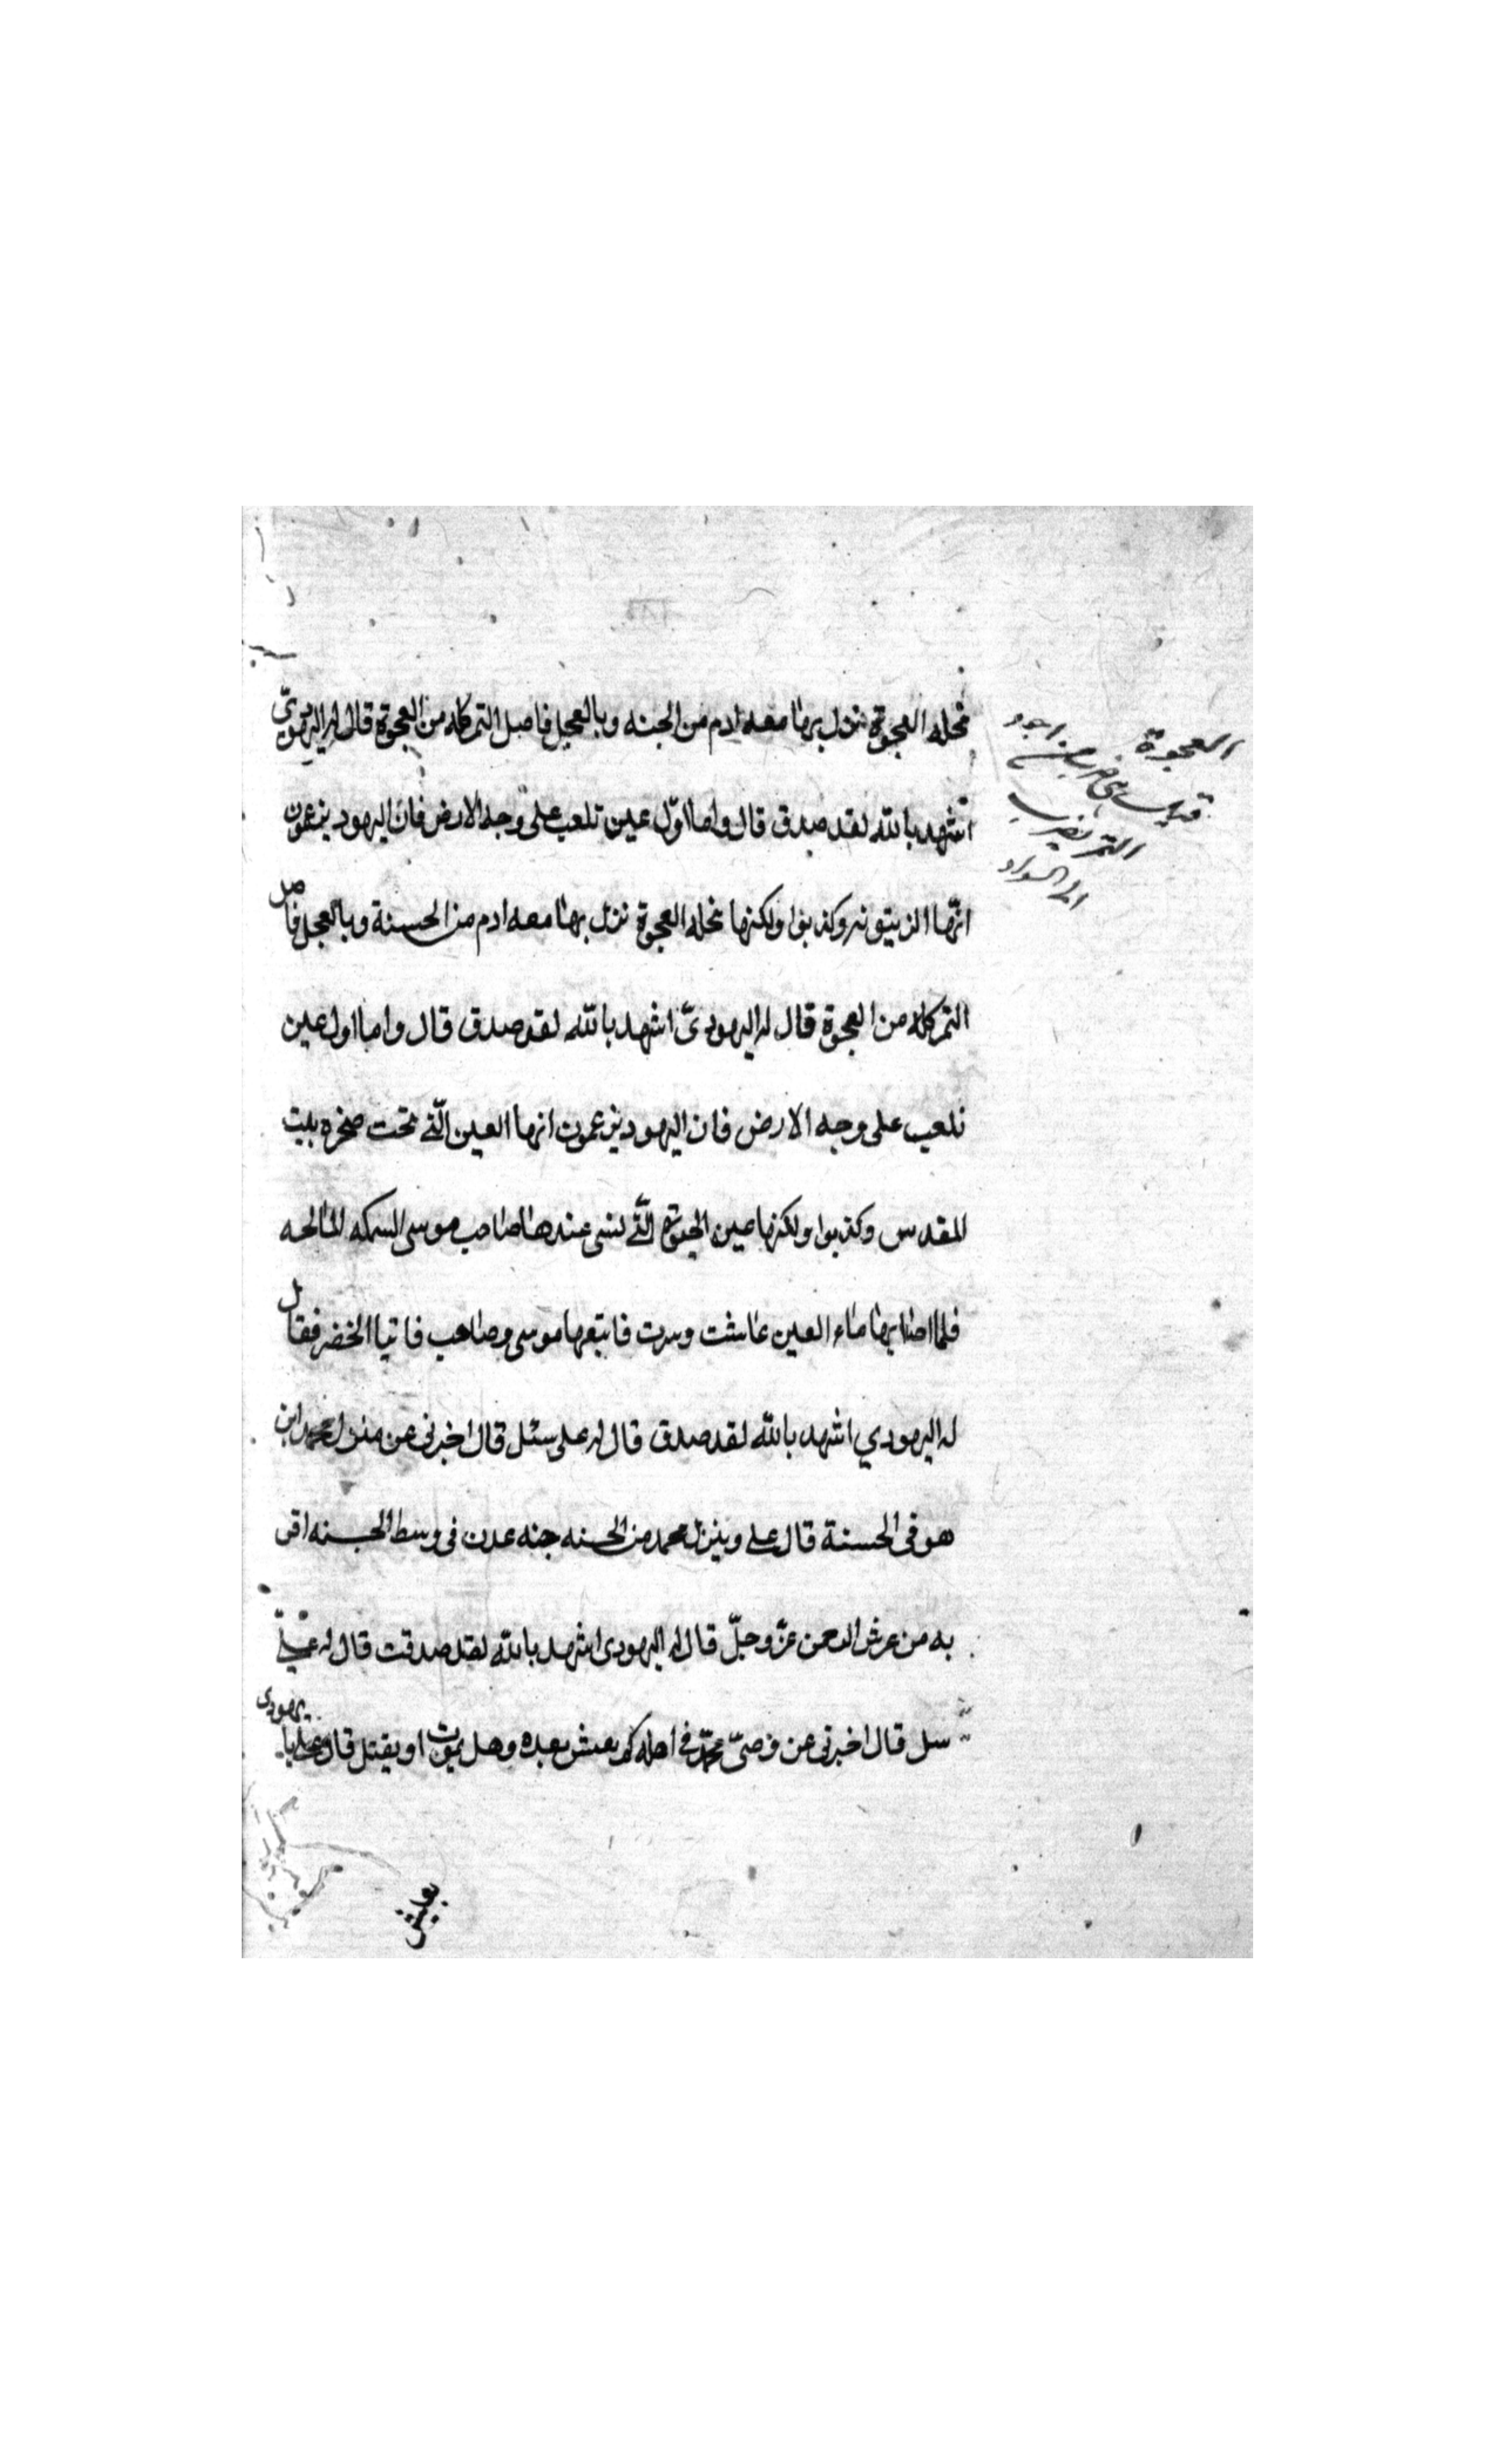 نخله العجوة نزل بها معه ادم من الجنه وبالعجل فاصل التمر كله من العجوة قال له اليهوديّ
اشهد بالله لقد صدق قال واما اوّل عين تلعب على وجه الارض فان اليهود يزعمون
انّها الزيتونه وكذبوا ولكنها نخله العجوة نزل بها معه ادم من الحسنة وبالعجل فاصل
التمر كله من العجوة قال له اليهوديّ اشهد بالله لقد صدق قال واما اول عين
تلعب على وجه الارض فان اليهود يزعمون انها العين الّتى تحت صخره بيت
المقدس وكذبوا ولكنها عين الحيوة الّتى نسى عندها صاحب موسى السمكه المالحه
فلما اصابها ماء العين عاشت وسرت فاتبعها موسى وصاحب فاتيا الخضر فقال
له اليهودي اشهد بالله لقد صدق قال له على سئل قال اخبرنى عن منزل محمد اين
هو فى الحسنة قال على وينزل محمد من الحسنه جنه عدن فى وسط الجسنه اقر
به من عرش الرحمن عزّ وجلّ قال له اليهودى اشهد بالله لقد صدقت قال له علىّ
سل قال اخبرنى عن وصىّ محمّد فى اهله كم يعيش بعده وهل يموت او يقتل قال على يا يهودى
يعيش
العجوة
التمر يضرب
الى السواد